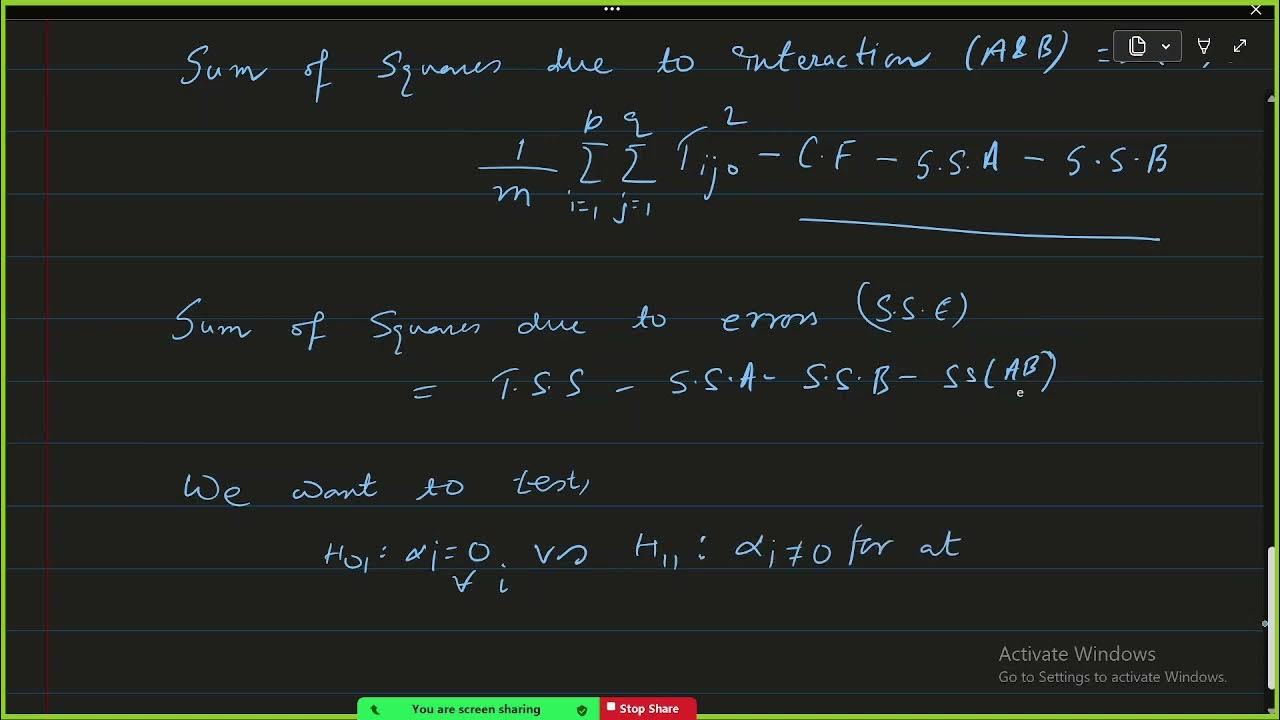 Sum of Squares due to interaction (A&B) =
1/m p∑i=1 q∑j=1 Tij0² - C.F - S.S.A - S.S.B
Sum of Squares due to errors (S.S.E)
= T.S.S - S.S.A - S.S.B - SS(AB)
We want to test,
H01: αi=0 ∀ i vs H11: αi≠0 for at
Activate Windows
Go to Settings to activate Windows.
You are screen sharing
Stop Share